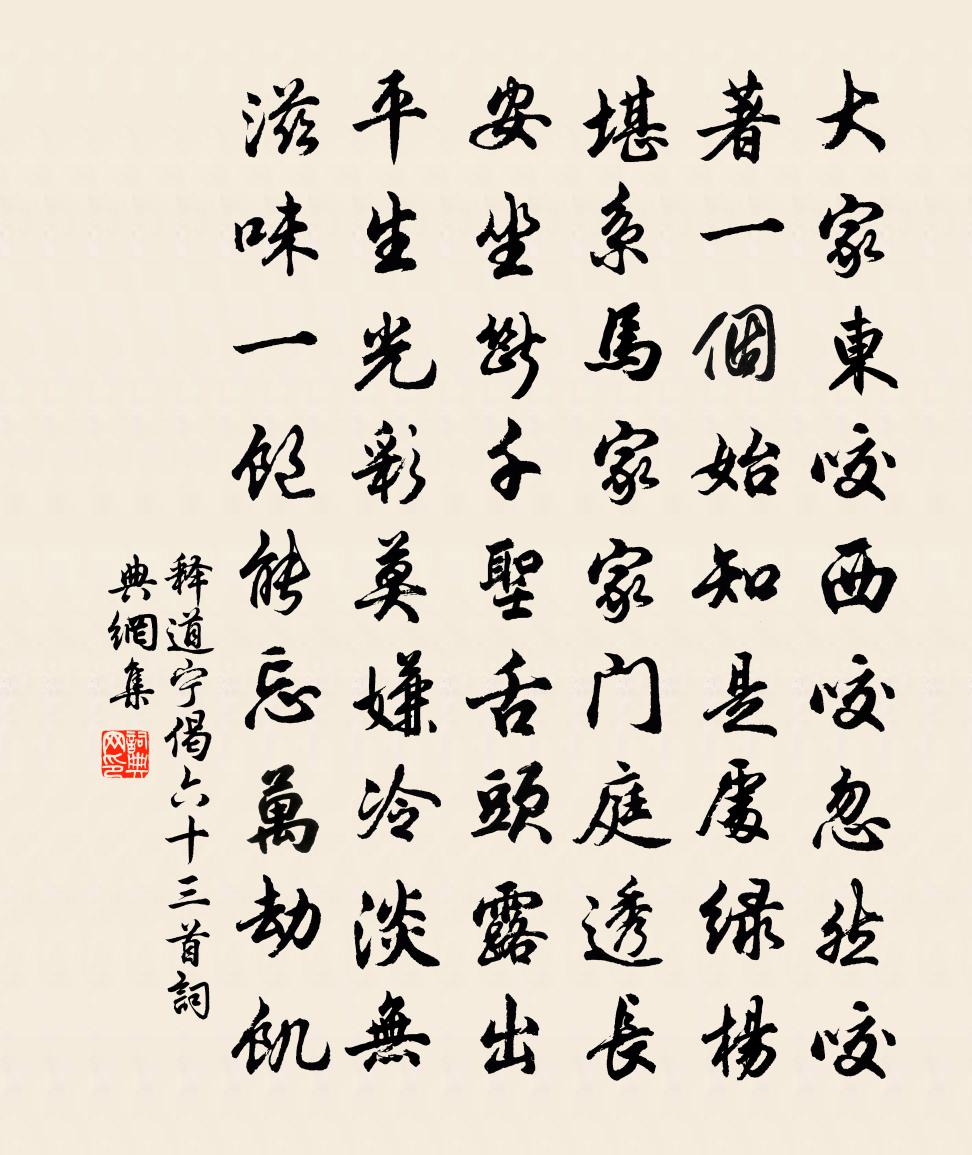 大家東咬西咬忽然咬
著一個始知是處綠楊
堪系馬家家门庭透長
安坐斷千聖舌頭露出
平生光彩莫嫌冷淡無
滋味一飽能忘萬劫飢
释道宁偈六十三首詞
典網集
詞典网印